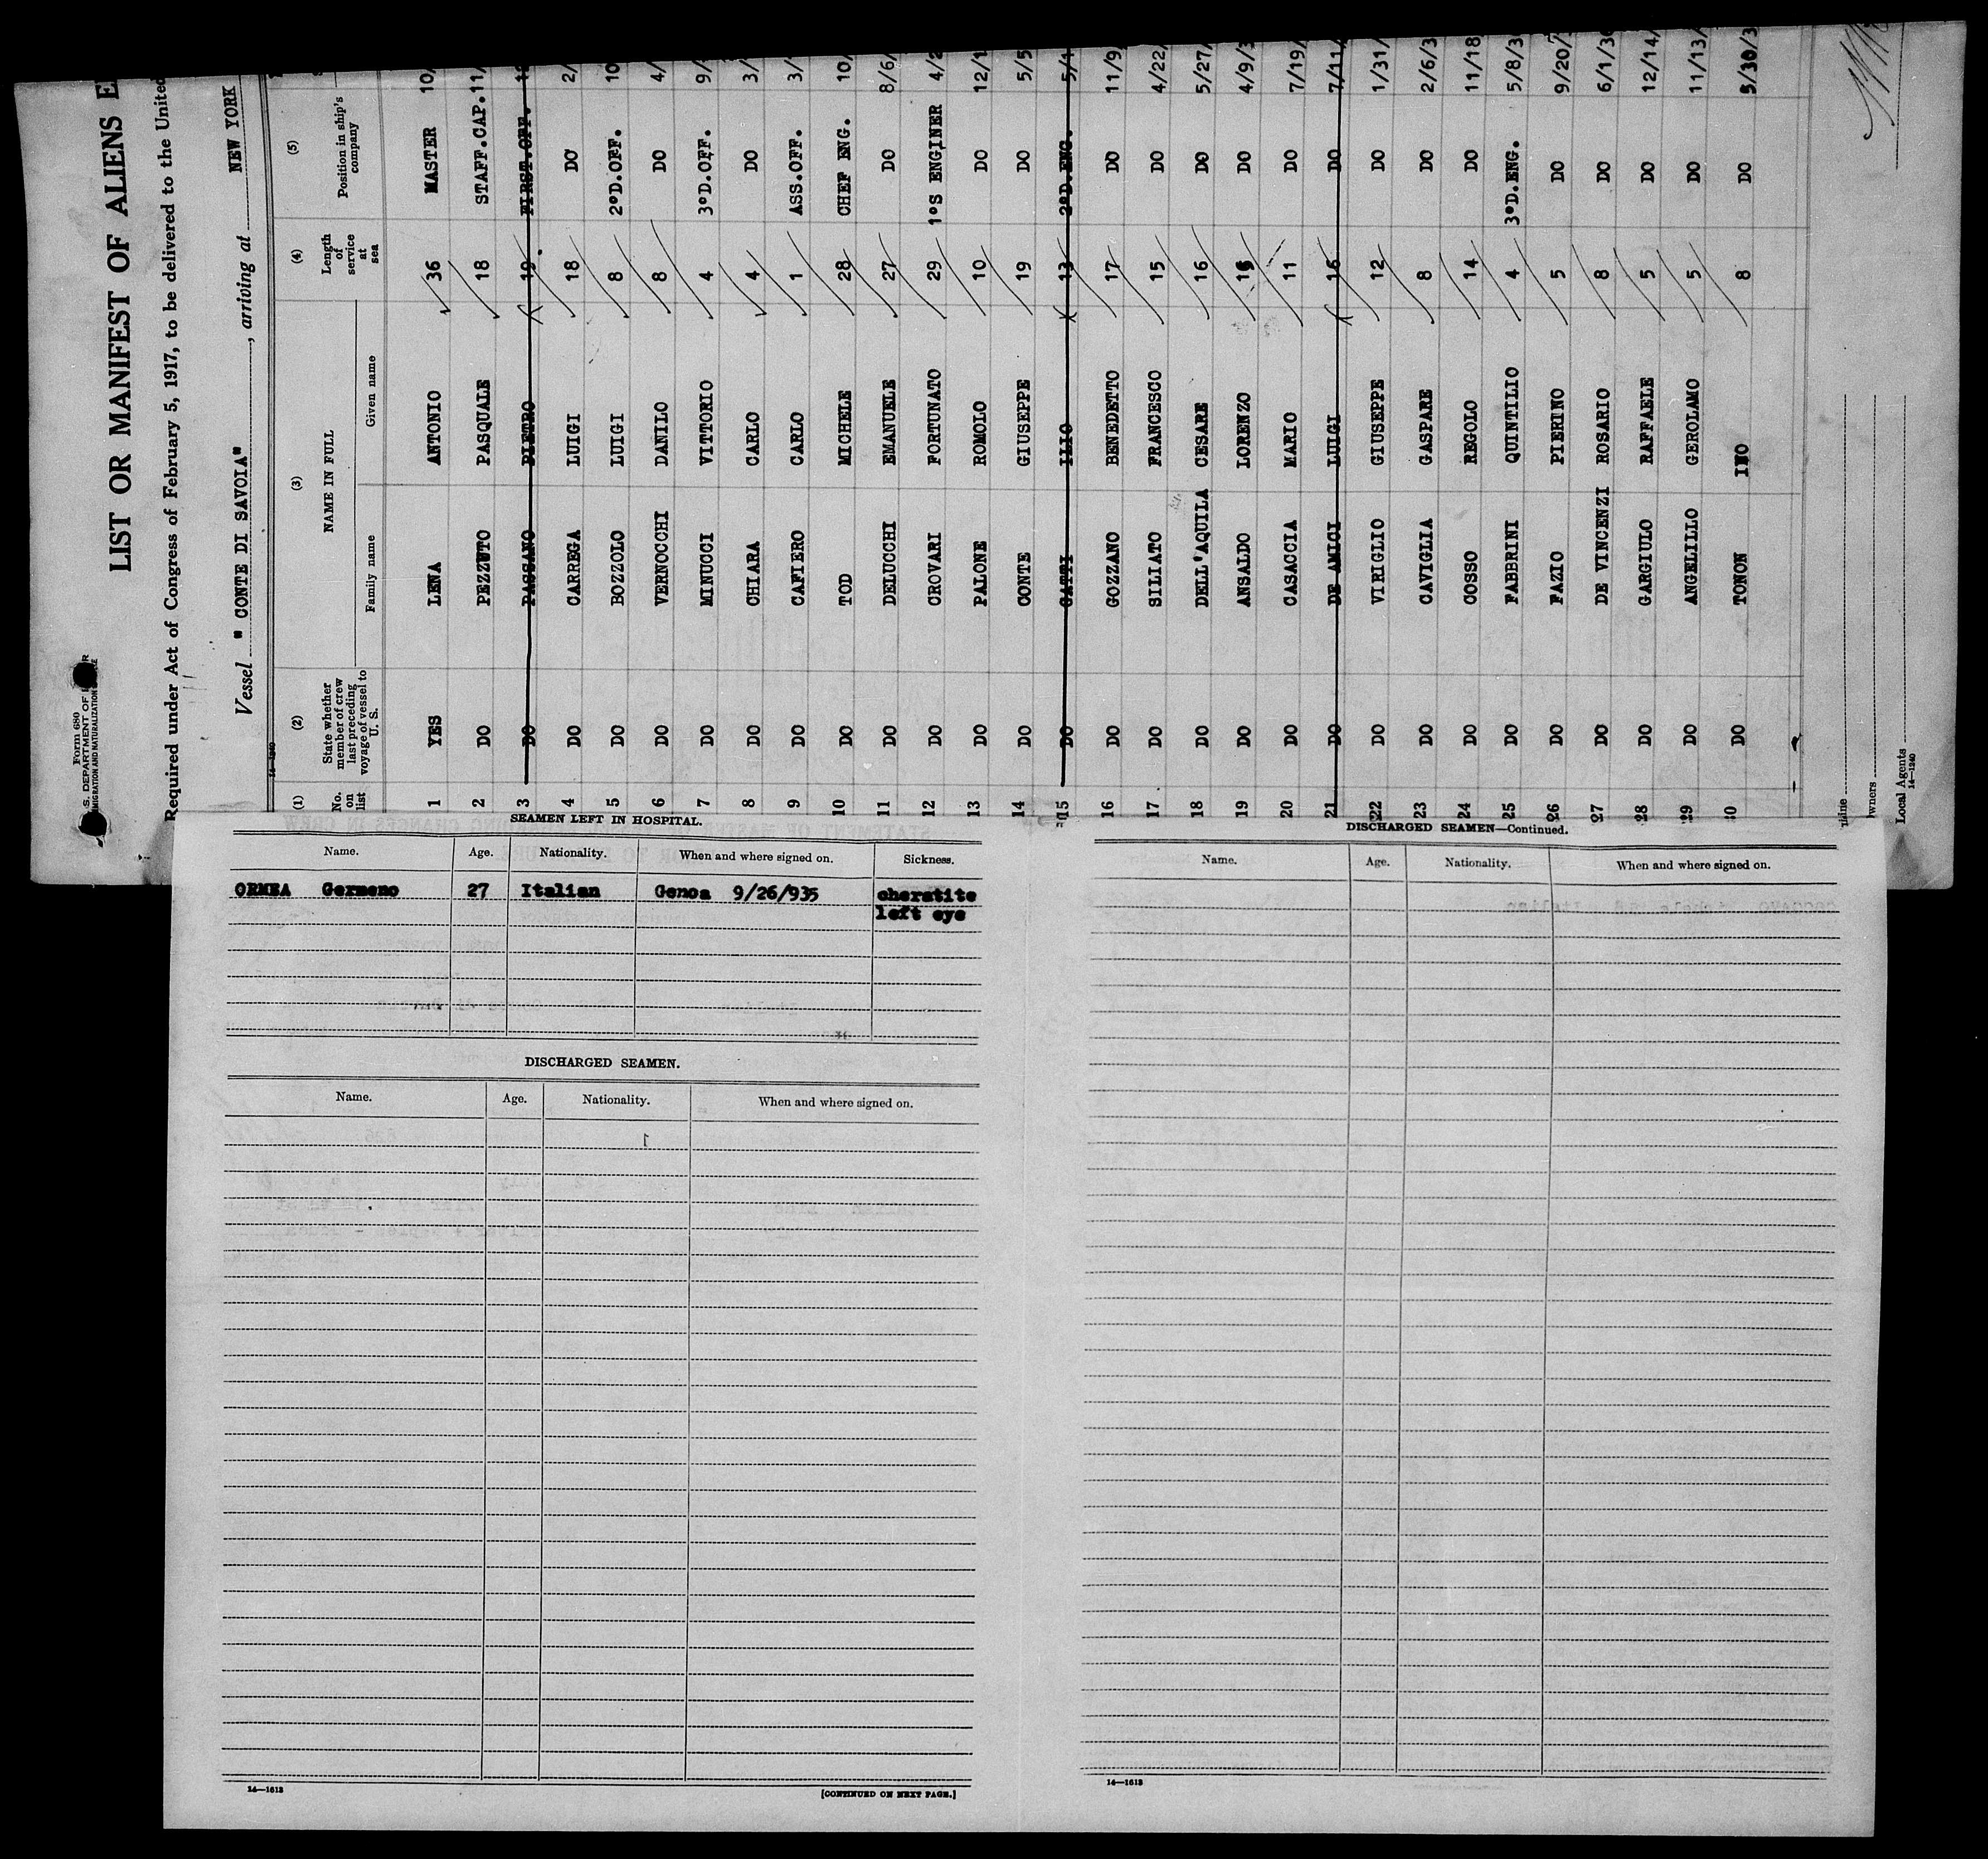 Form 680
U.S. DEPARTMENT OF
IMMIGRATION AND NATURALIZATION
LIST OR MANIFEST OF ALIENS
Required under Act of Congress of February 5, 1917, to be delivered to the United
Vessel " CONTE DI SAVOIA" , arriving at NEW YORK
14—1240
(1) (2) (3) (4) (5)
No. on list State whether member of crew last preceding voyage of vessel to U. S. NAME IN FULL Length of service at sea Position in ship's company
Family name Given name
1 YES LENA ANTONIO 36 MASTER 10/
2 DO PEZZUTO PASQUALE 18 STAFF.CAP. 11/
3 DO PASSANO PIETRO 19 FIRST.OFF.
4 DO CARREGA LUIGI 18 DO 2/
5 DO BOZZOLO LUIGI 8 2°D.OFF. 10
6 DO VERNOCCHI DANILO 8 DO 4/
7 DO MINUCCI VITTORIO 4 3°D.OFF. 9/
8 DO CHIARA CARLO 4 DO 3/
9 DO CAFIERO CARLO 1 ASS.OFF. 3/
10 DO TOD MICHELE 28 CHEF ENG. 10/
11 DO DELUCCHI EMANUELE 27 DO 8/6/
12 DO CROVARI FORTUNATO 29 1°S ENGINER 4/2
13 DO PALONE ROMOLO 10 DO 12/1
14 DO CONTE GIUSEPPE 19 DO 5/5
15 DO GATTI ILIO 13 2°D.ENG. 5/1
16 DO GOZZANO BENEDETTO 17 DO 11/9
17 DO SILIATO FRANCESCO 15 DO 4/22/
18 DO DELL'AQUILA CESARE 16 DO 5/27/
19 DO ANSALDO LORENZO 16 DO 4/9/3
20 DO CASACCIA MARIO 11 DO 7/19/
21 DO DE AMICI LUIGI 16 DO 7/11/
22 DO VIRIGLIO GIUSEPPE 12 DO 1/31/
23 DO CAVIGLIA GASPARE 8 DO 2/6/3
24 DO COSSO REGOLO 14 DO 11/18
25 DO FABBRINI QUINTILIO 4 3°D.ENG. 5/8/3
26 DO FAZIO PIERINO 5 DO 9/20/
27 DO DE VINCENZI ROSARIO 8 DO 6/1/3
28 DO GARGIULO RAFFAELE 5 DO 12/14/
29 DO ANGELILLO GEROLAMO 5 DO 11/13/
30 DO TONON INO 8 DO 5/30/3
Line
Owners
Local Agents
14—1240
SEAMEN LEFT IN HOSPITAL.
Name. Age. Nationality. When and where signed on. Sickness.
ORMEA Germeno 27 Italian Genoa 9/26/935 cheratite
left eye
DISCHARGED SEAMEN.
Name. Age. Nationality. When and where signed on.
14—1613
[CONTINUED ON NEXT PAGE.]
DISCHARGED SEAMEN—Continued.
Name. Age. Nationality. When and where signed on.
14—1613